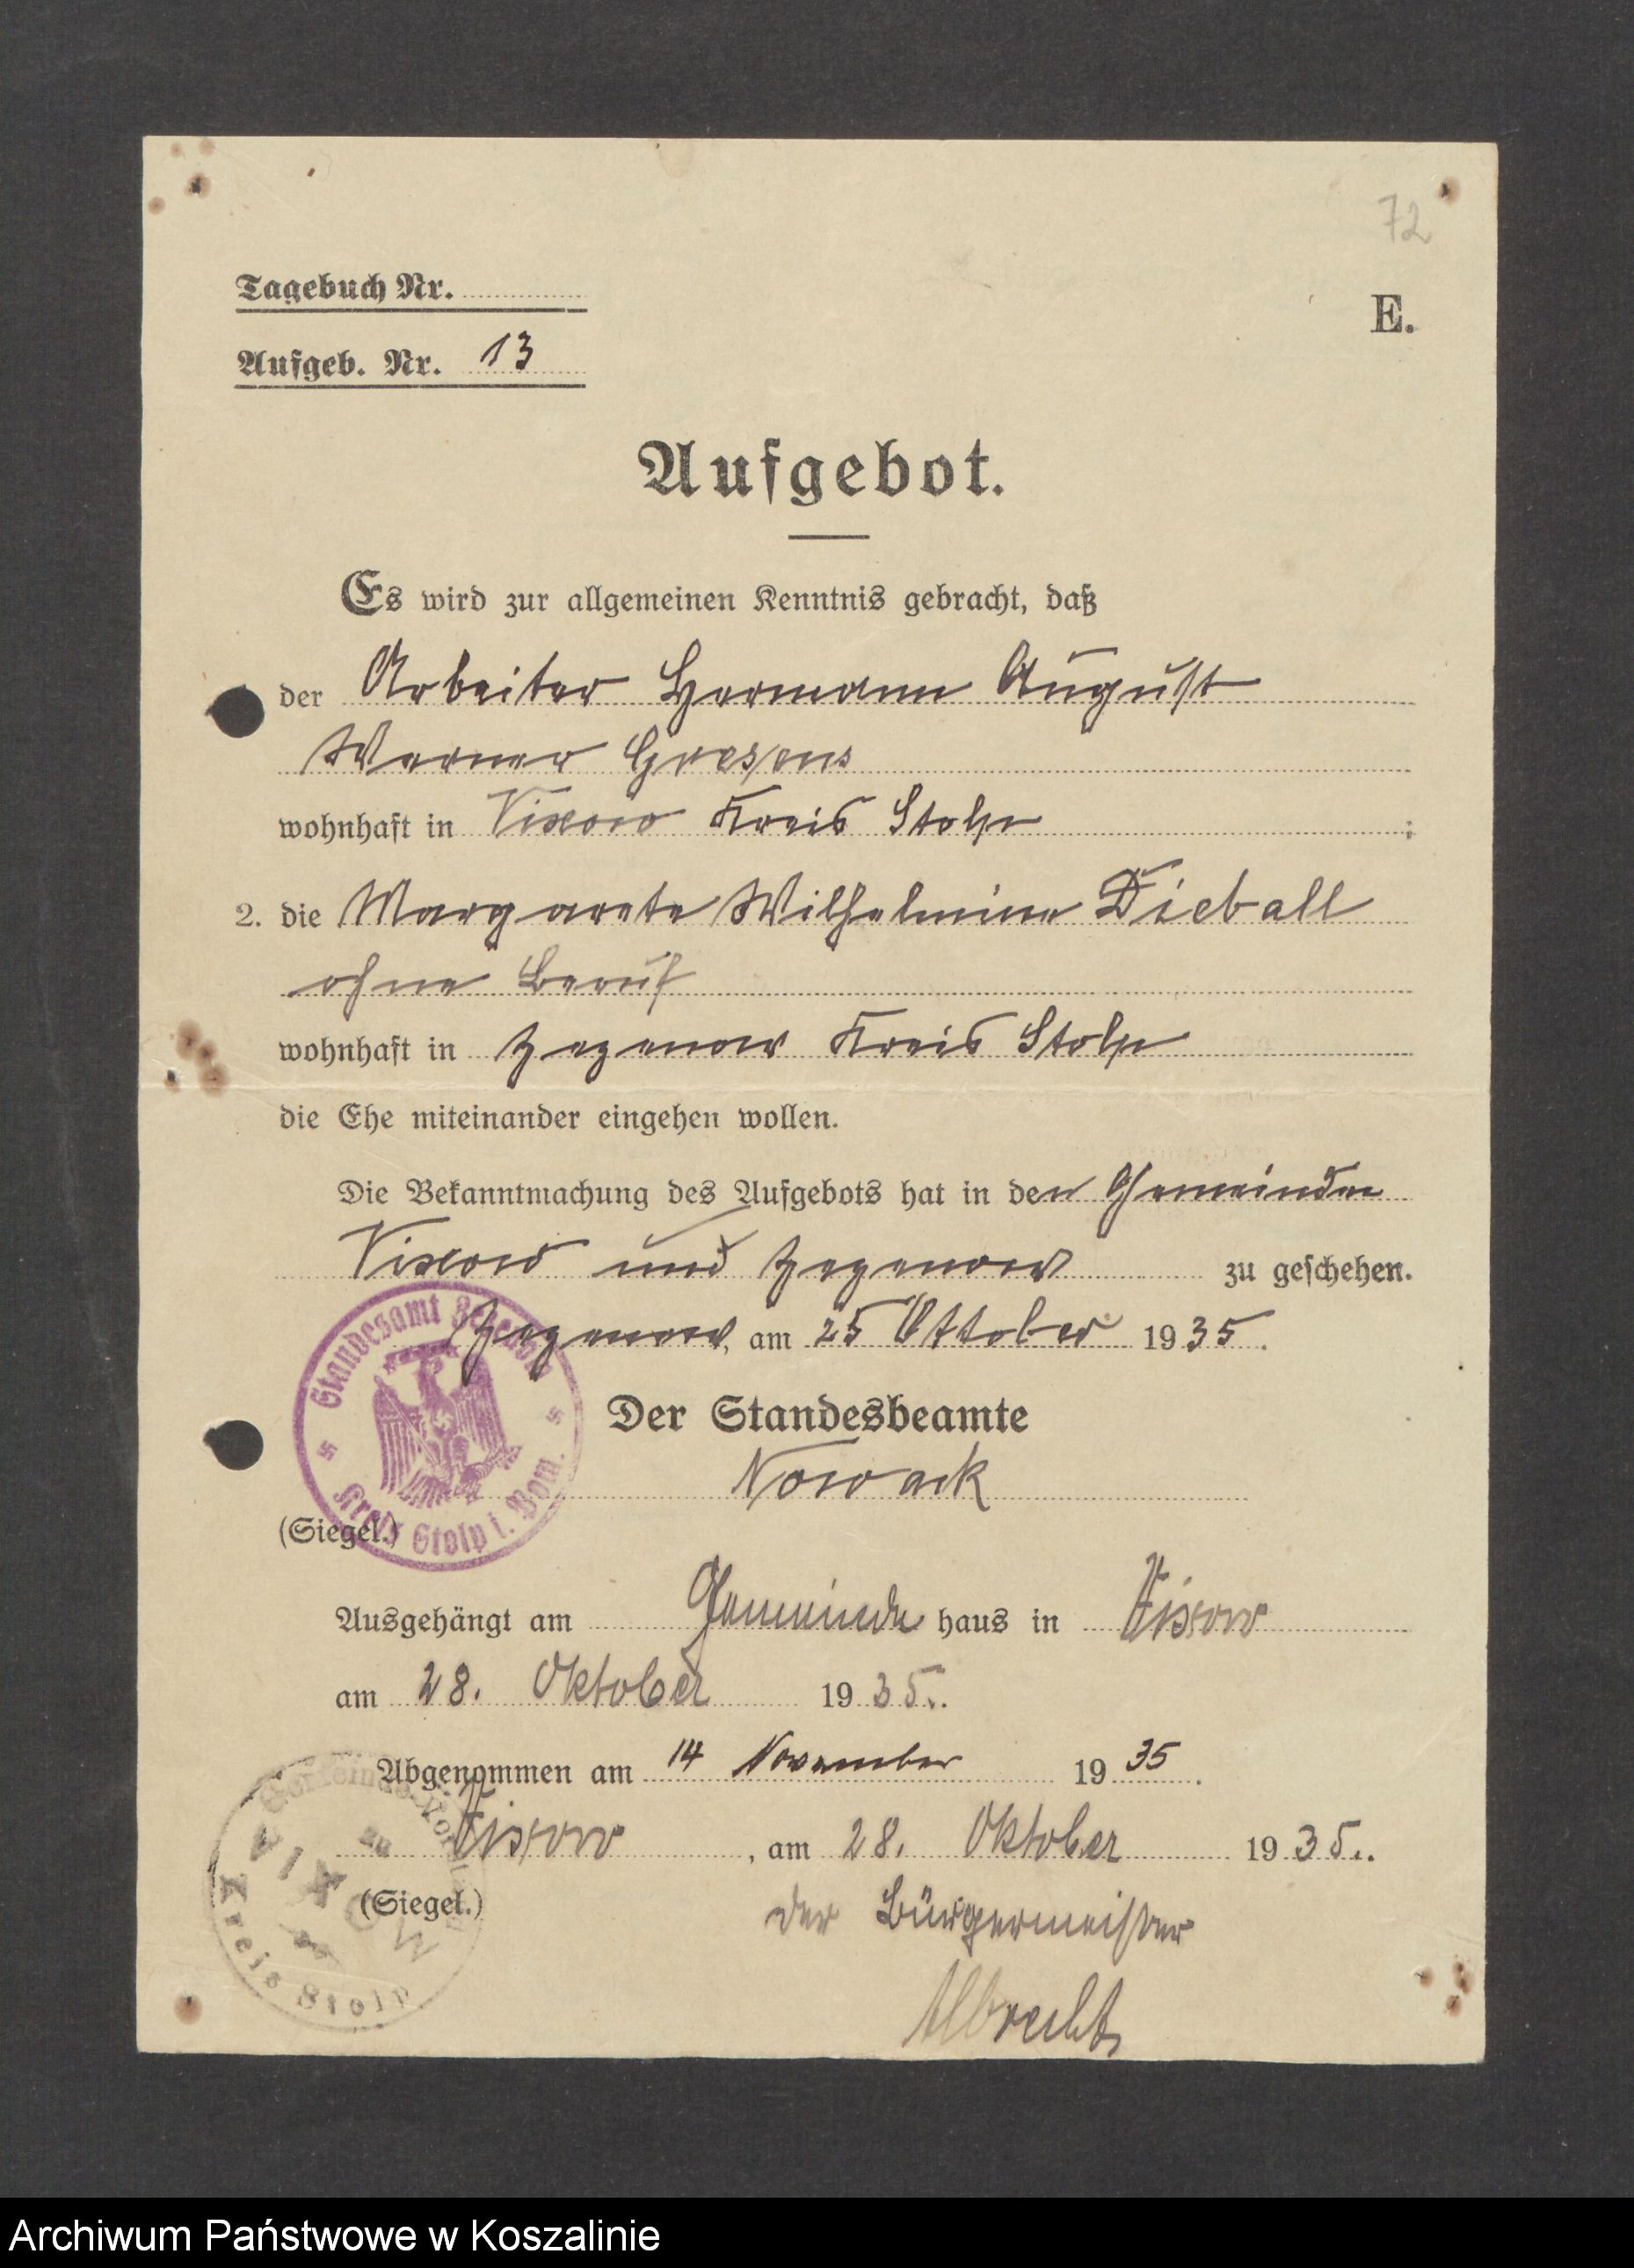 72
Tagebuch Nr.
E.
Aufgeb. Nr. 13
Aufgebot.
Es wird zur allgemeinen Kenntnis gebracht, daß
der Arbeiter Hermann August
Werner Gresens
wohnhaft in Vixow Kreis Stolp ;
2. die Margarete Wilhelmine Dieball
ohne Beruf
wohnhaft in Zezenow Kreis Stolp
die Ehe miteinander eingehen wollen.
Die Bekanntmachung des Aufgebots hat in den Gemeinden
Vixow und Zezenow zu geschehen.
Zezenow, am 25 Oktober 1935.
Standesamt Zezenow
Kreis Stolp i. Pom.
Der Standesbeamte
Nowack
(Siegel.)
Ausgehängt am Gemeinde haus in Vixow
am 28. Oktober 1935.
Abgenommen am 14 November 1935.
Vixow, am 28. Oktober 1935.
zu
VIXOW
Kreis Stolp
(Siegel.)
der Bürgermeister
Albrecht
Archiwum Państwowe w Koszalinie